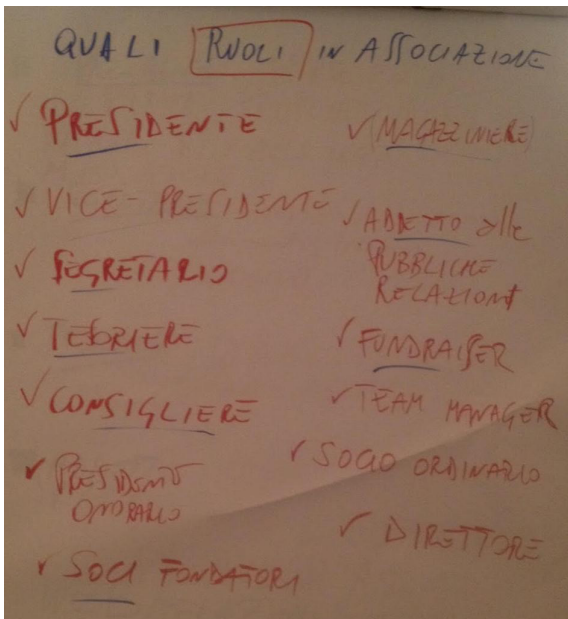 QUALI RUOLI IN ASSOCIAZIONE
✓ PRESIDENTE
✓ VICE-PRESIDENTE
✓ SEGRETARIO
✓ TESORIERE
✓ CONSIGLIERE
✓ PRESIDENTE
ONORARIO
✓ SOCI FONDATORI
✓ (MAGAZZINIERE)
✓ ADDETTO alle
PUBBLICHE
RELAZIONI
✓ FUNDRAISER
✓ TEAM MANAGER
✓ SOCIO ORDINARIO
✓ DIRETTORE